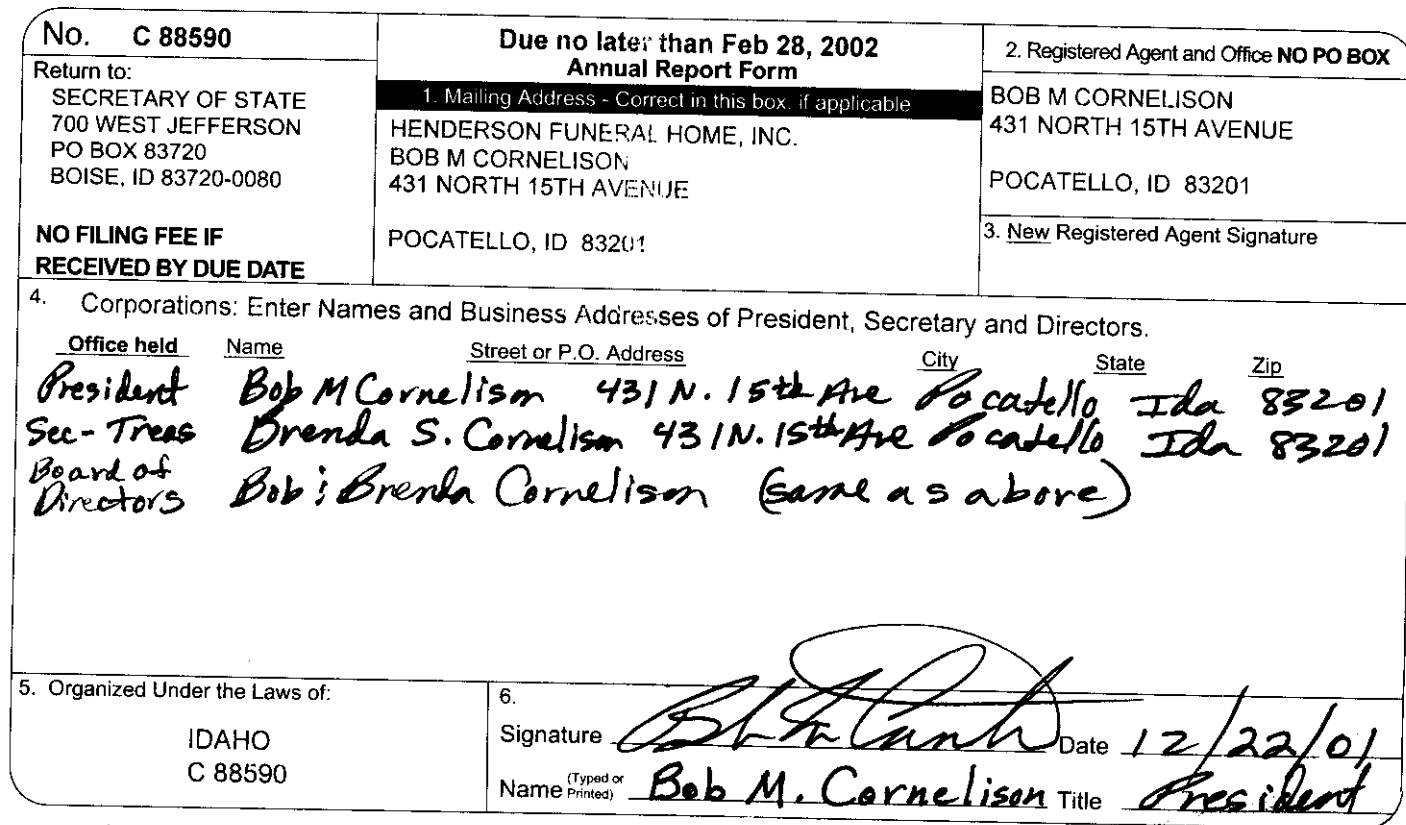 No. C 88590
Return to:
SECRETARY OF STATE
700 WEST JEFFERSON
PO BOX 83720
BOISE, ID 83720-0080
NO FILING FEE IF
RECEIVED BY DUE DATE
Due no later than Feb 28, 2002
Annual Report Form
1. Mailing Address - Correct in this box, if applicable
HENDERSON FUNERAL HOME, INC.
BOB M CORNELISON
431 NORTH 15TH AVENUE
POCATELLO, ID 83201
2. Registered Agent and Office NO PO BOX
BOB M CORNELISON
431 NORTH 15TH AVENUE
POCATELLO, ID 83201
3. New Registered Agent Signature
4. Corporations: Enter Names and Business Addresses of President, Secretary and Directors.
Office held Name Street or P.O. Address City State Zip
President Bob M Cornelison 431 N. 15th Ave Pocatello Ida 83201
Sec-Treas Brenda S. Cornelison 431 N. 15th Ave Pocatello Ida 83201
Board of
Directors Bob & Brenda Cornelison (same as above)
5. Organized Under the Laws of:
IDAHO
C 88590
6.
Signature Date 12/22/01
Name (Typed or Printed) Bob M. Cornelison Title President